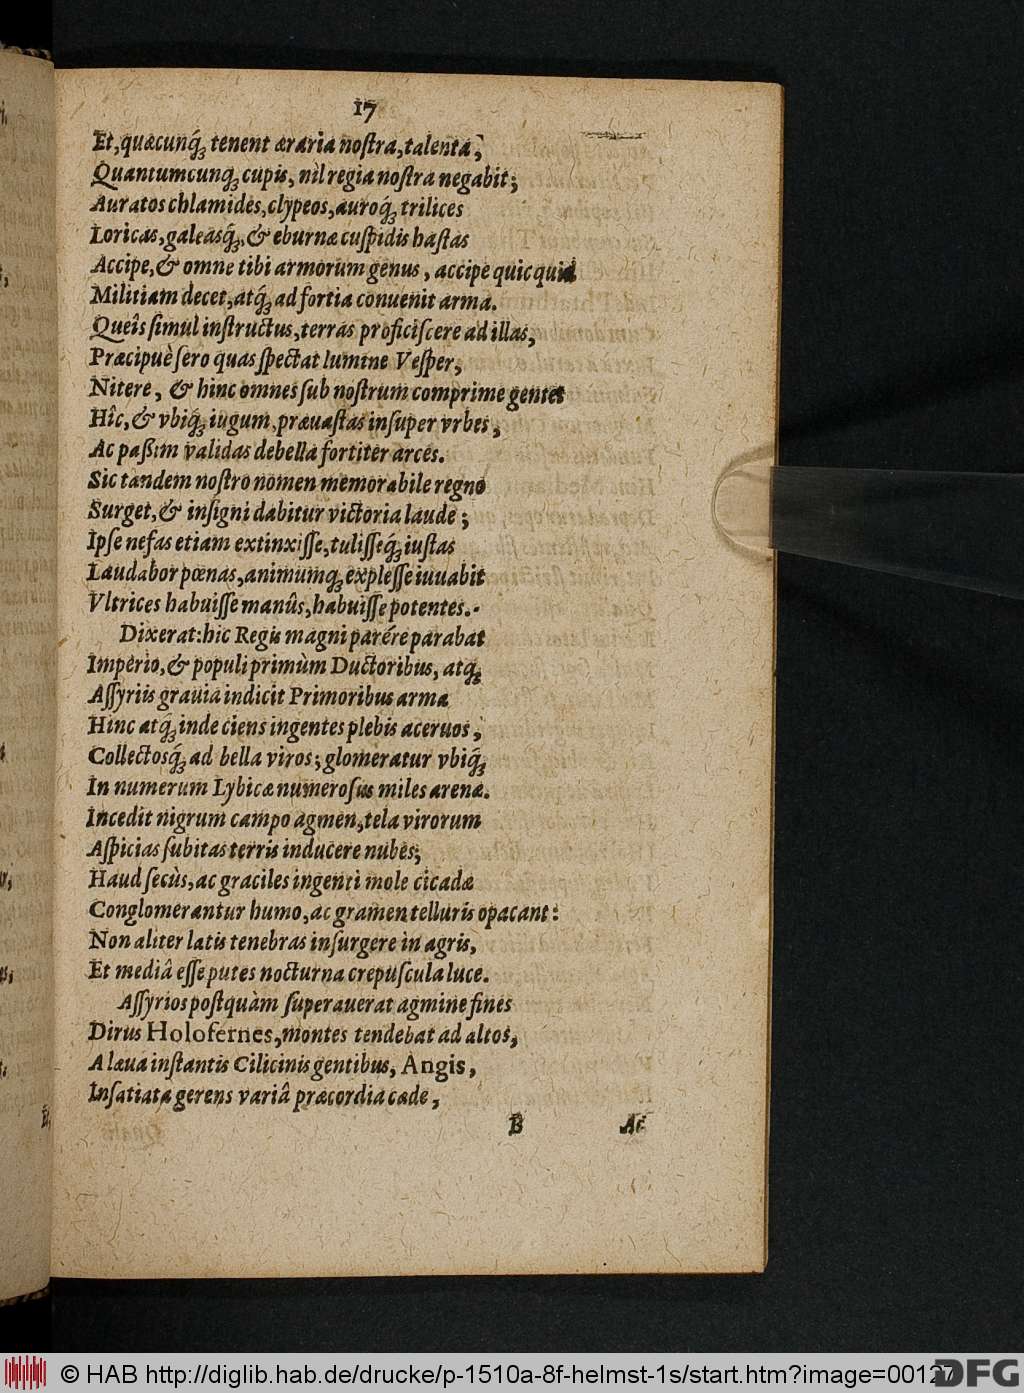 17
Et, quæcunq́; tenent æraria nostra, talenta,
Quantumcunq; cupis, nil regia nostra negabit;
Auratos chlamides, clypeos, auroq́; trilices
Loricas, galeasq́;, & eburnæ cuspidis hastas
Accipe, & omne tibi armorum genus, accipe quicquid
Militiam decet, atq́; ad fortia conuenit arma.
Queîs simul instructus, terras proficiscere ad illas,
Præcipuè sero quas spectat lumine Vesper,
Nitere, & hinc omnes sub nostrum comprime gentes
Hîc, & vbiq́; iugum, præuastas insuper vrbes,
Ac paßim validas debella fortiter arces.
Sic tandem nostro nomen memorabile regno
Surget, & insigni dabitur victoria laude;
Ipse nefas etiam extinxisse, tulisseq́; iustas
Laudabor pœnas, animumq; explesse iuuabit
Vltrices habuisse manûs, habuisse potentes.
Dixerat: hic Regis magni parére parabat
Imperio, & populi primùm Ductoribus, atq́;
Assyriis grauia indicit Primoribus arma
Hinc atq́; inde ciens ingentes plebis aceruos,
Collectosq́; ad bella viros; glomeratur vbiq́;
In numerum Lybicæ numerosus miles arenæ.
Incedit nigrum campo agmen, tela virorum
Aspicias subitas terris inducere nubes;
Haud secùs, ac graciles ingenti mole cicadæ
Conglomerantur humo, ac gramen telluris opacant:
Non aliter latis tenebras insurgere in agris,
Et mediâ esse putes nocturna crepuscula luce.
Assyrios postquàm superauerat agmine fines
Dirus Holofernes, montes tendebat ad altos,
A læua instantis Cilicinis gentibus, Angis,
Insatiata gerens variâ præcordia cæde,
B Ac
© HAB http://diglib.hab.de/drucke/p-1510a-8f-helmst-1s/start.htm?image=00127
DFG